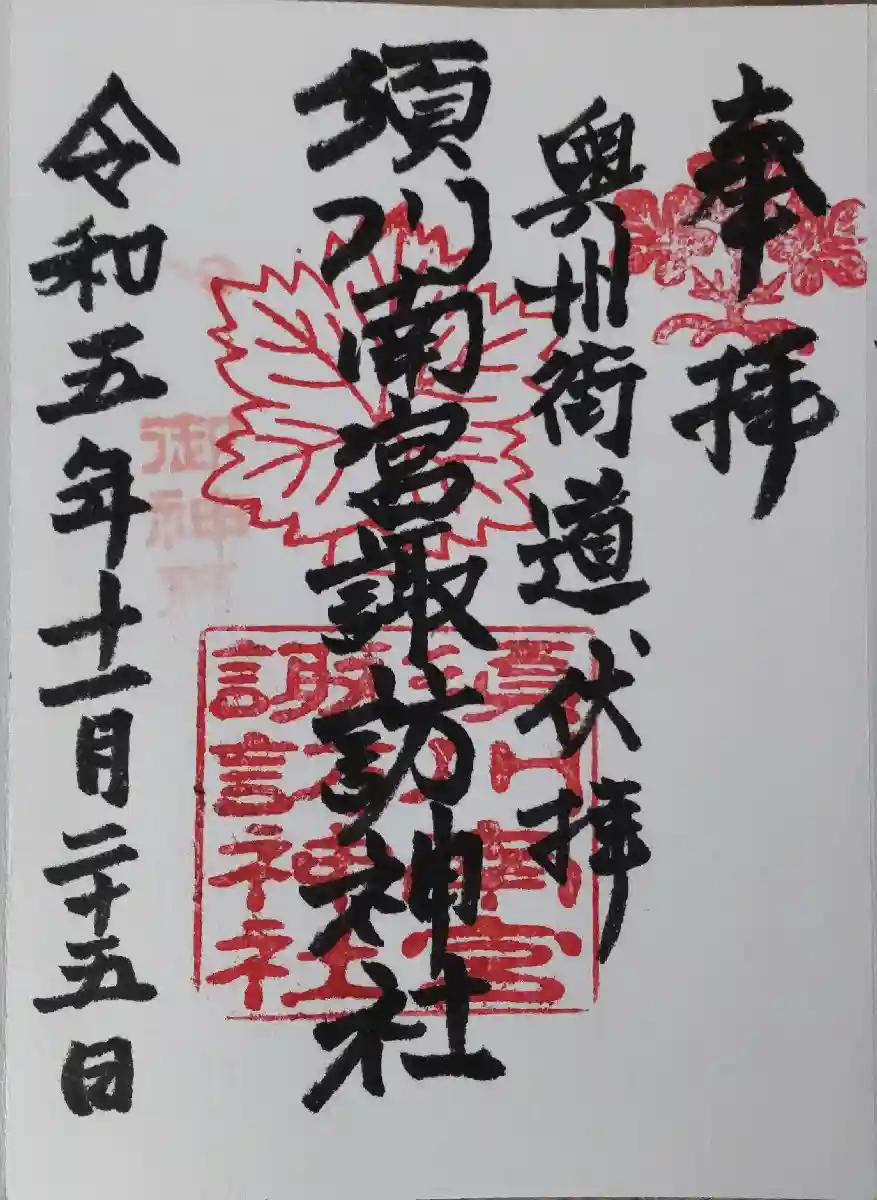 奉拝
奥州街道伏拝
須川南宮諏訪神社
令和五年十一月二十五日
須川南宮
諏訪神社
御神